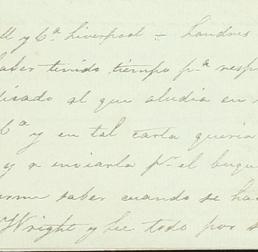 ll y C.ª Liverpool = Londres
aber tenido tiempo p.ª resp
lisado al que aludia en
C.ª y en tal carta queria
y a enviarla p.r el buque
arme saber cuando se ha
Wright y he todo por s